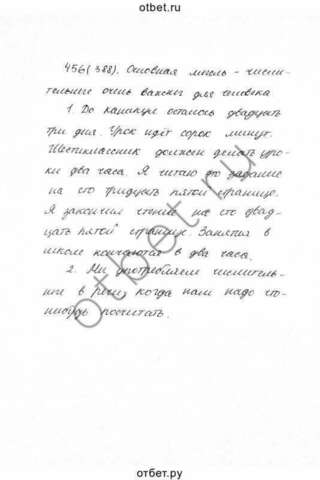 otbet.ru
456(388). Основная мысль - числи-
тельные очень важны для человека
1. До каникул осталось двадцать
три дня. Урок идёт сорок минут.
Шестиклассник должен делать уро-
ки два часа. Я читаю это задание
на сто тридцать пятой странице.
Я закончил чтение на сто двад-
цать пятой странице. Занятия в
школе кончаются в два часа.
2. Мы употребляем числитель-
ные в речи, когда нам надо что-
нибудь посчитать.
otbet.ru
отбет.ру